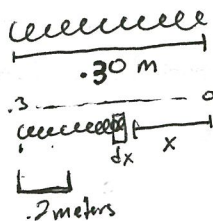 .30 m
.3 0
dx x
.2 meters